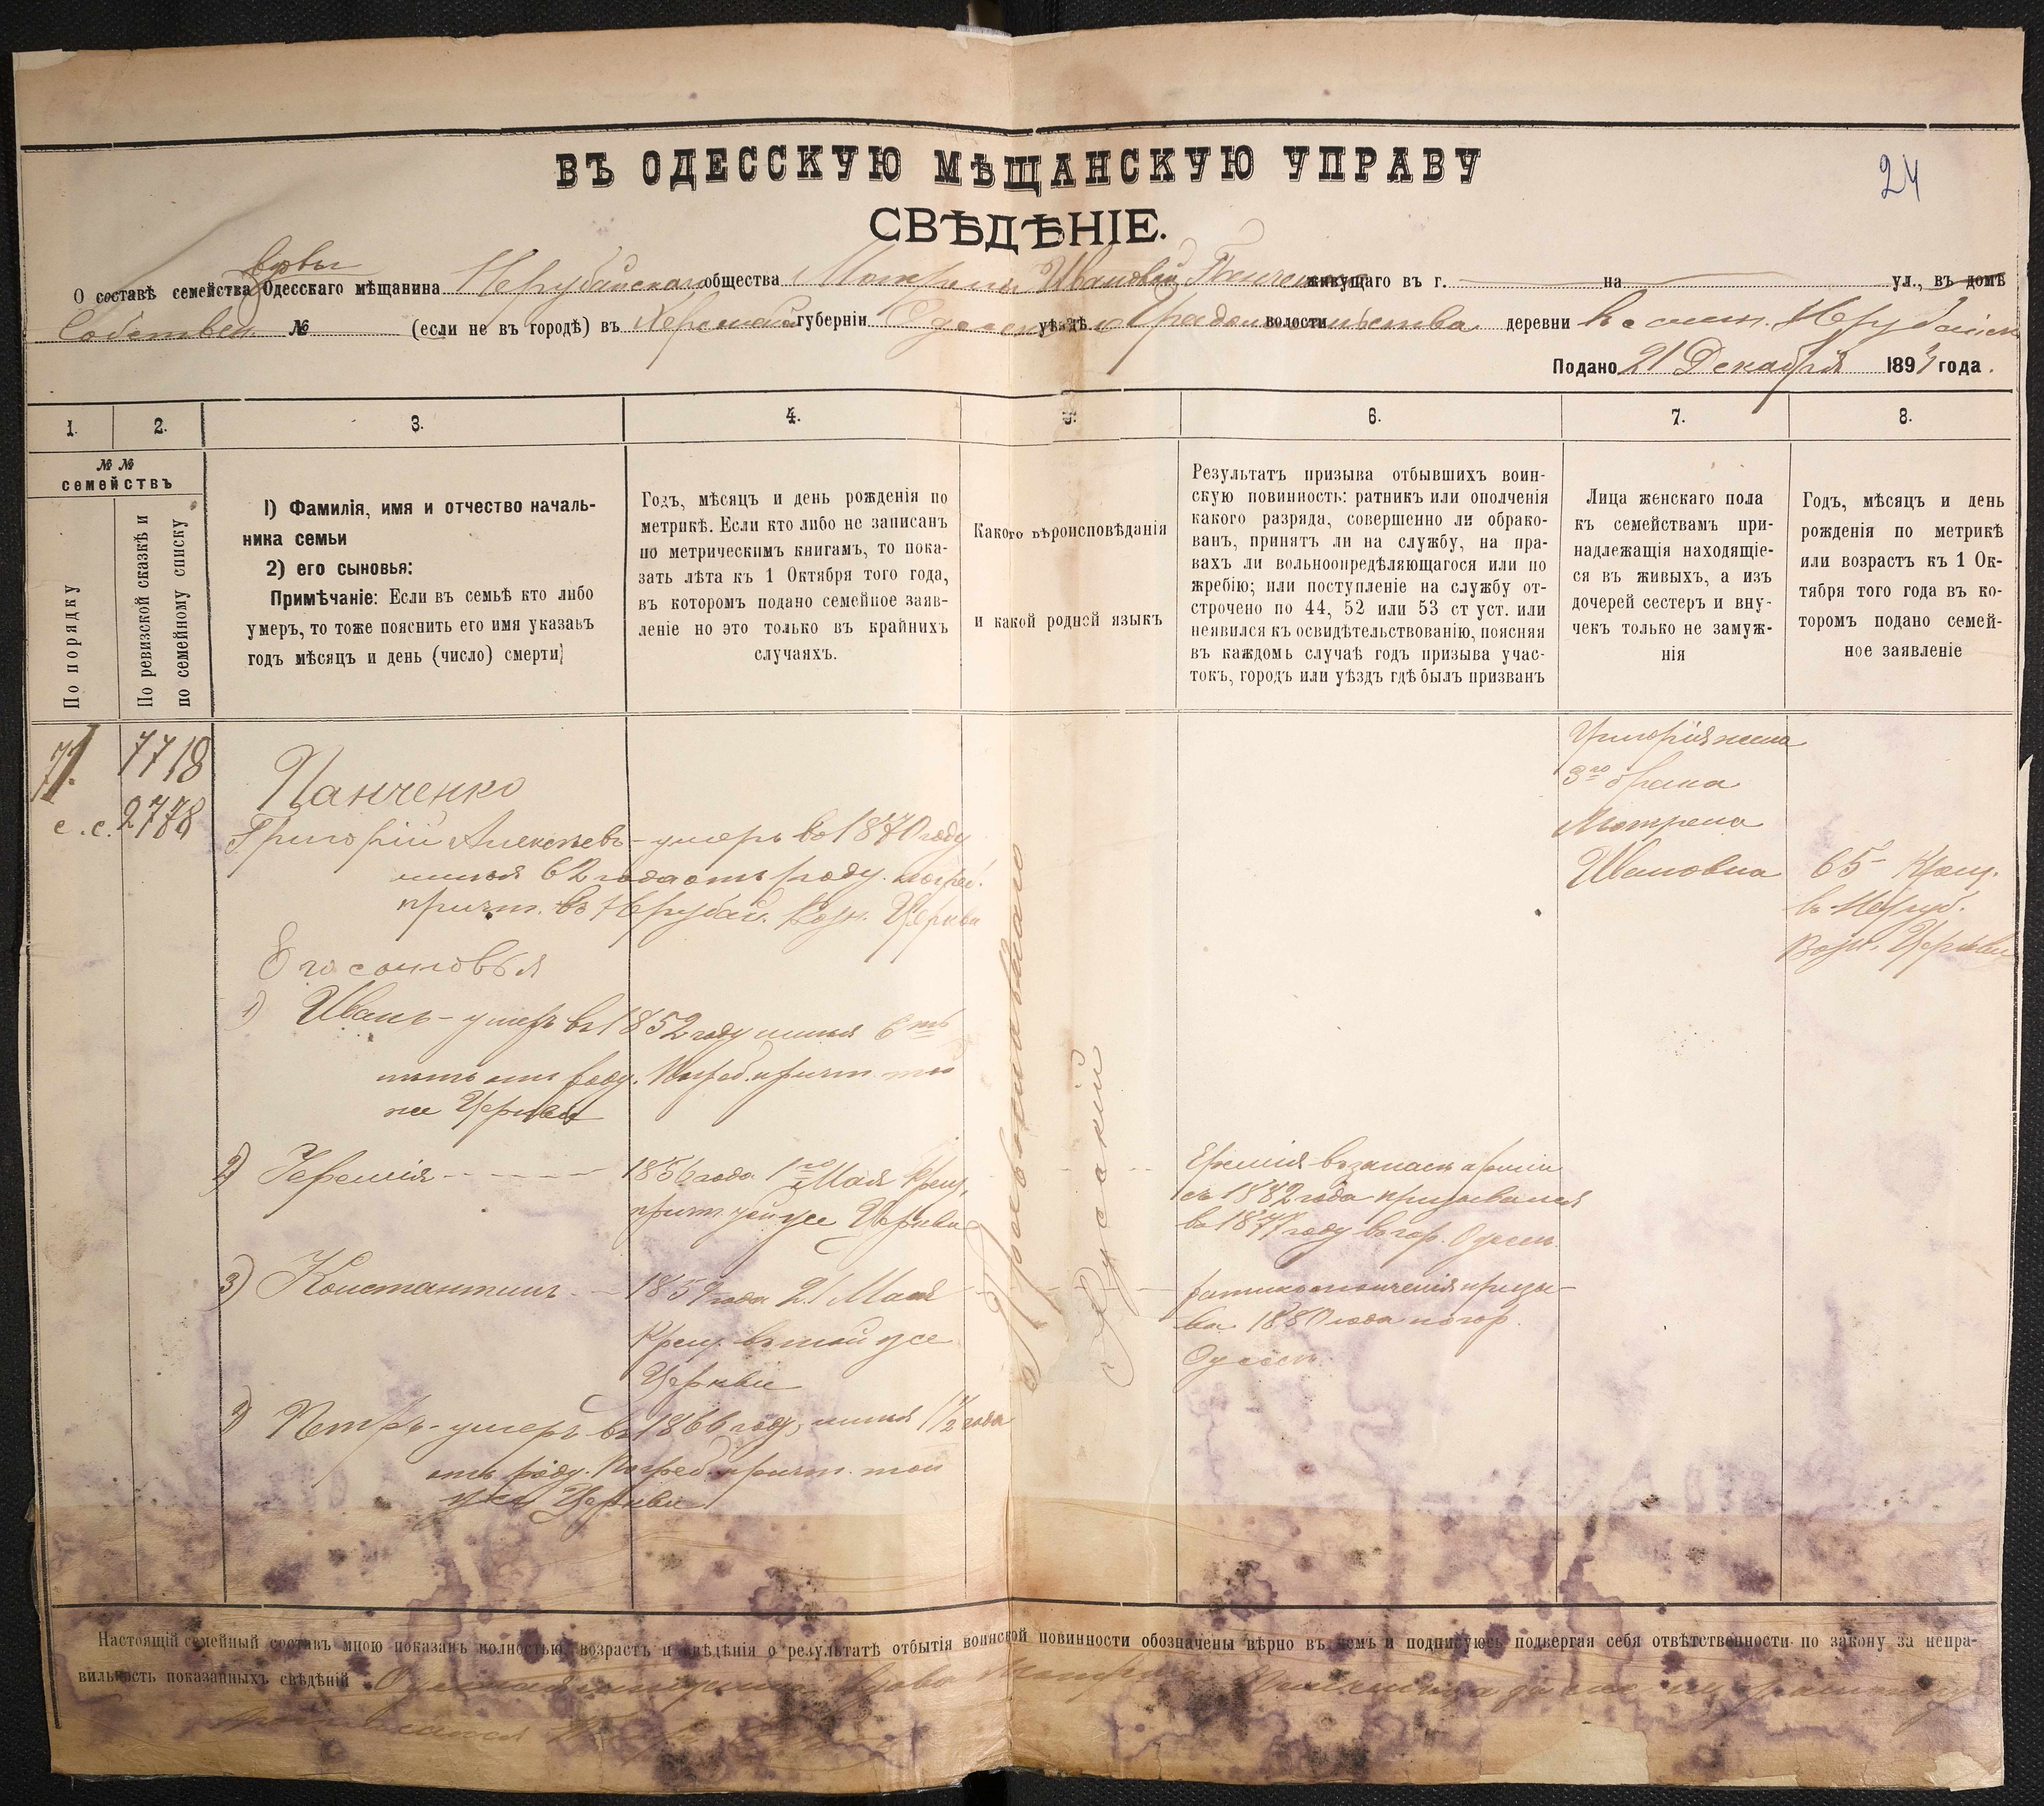 24
ВЪ ОДЕССКУЮ МѢЩАНСКУЮ УПРАВУ
СВѢДѢНІЕ.
вдовы
О составѣ семейства Одесскаго мѣщанина Нерубайскаго общества Матрены Ивановой Панченковой живущаго въ г. на ул., въ домѣ
Собствен. № (если не въ городѣ) въ Херсонской губерніи Одесскаго уѣздѣ Градоначальства волости деревни въ селен. Нерубайск
Подано 21 Декабря 189 года.
1. 2. 3. 4. 5. 6. 7. 8.
№ №
семействъ
По порядку
По ревизской сказкѣ и
по семейному списку
1) Фамилія, имя и отчество началь-
ника семьи
2) его сыновья:
Примѣчаніе: Если въ семьѣ кто либо
умеръ, то тоже пояснить его имя указавъ
годъ мѣсяцъ и день (число) смерти
Годъ, мѣсяцъ и день рожденія по
метрикѣ. Если кто либо не записанъ
по метрическимъ книгамъ, то пока-
зать лѣта къ 1 Октября того года,
въ которомъ подано семейное заяв-
леніе но это только въ крайнихъ
случаяхъ.
Какого вѣроисповѣданія
и какой родной языкъ
Результатъ призыва отбывшихъ воин-
скую повинность: ратникъ или ополченія
какого разряда, совершенно ли обрако-
ванъ, принятъ ли на службу, на пра-
вахъ ли вольноопредѣляющагося или по
жребію; или поступленіе на службу от-
строчено по 44, 52 или 53 ст уст. или
неявился къ освидѣтельствованію, поясняя
въ каждомъ случаѣ годъ призыва учас-
токъ, городъ или уѣздъ гдѣ былъ призванъ
Лица женскаго пола
къ семействамъ при-
надлежащія находящіе-
ся въ живыхъ, а изъ
дочерей сестеръ и вну-
чекъ только не замуж-
нія
Годъ, мѣсяцъ и день
рожденія по метрикѣ
или возрастъ къ 1 Ок-
тября того года въ ко-
торомъ подано семей-
ное заявленіе
7718
с.с. 2778
Панченко
Григорій Алексѣевъ - умеръ въ 1870 году
имѣя 62 года отъ роду. погреб.
причт. въ Нерубай. Возн. Церкви
Его сыновья
1) Иванъ - умеръ въ 1852 году имѣя 6ть
лѣтъ отъ роду. Погреб. причт. той
же Церкви
2) Іеремія - 1856 года 1го Мая Крещ.
причт. той же Церкви
3) Константинъ - 1859 года 21 Мая
Крещ. въ той же
Церкви
Петръ - умеръ въ 1866 году, имѣя 1½ года
отъ роду. Погреб. причт. той
же Церкви
Православнаго
Русскій
Еремія въ запасѣ арміи
съ 1882 года призывался
въ 1877 году въ гор. Одессѣ
ратникъ ополченія призы-
ва 1880 года по гор.
Одессѣ
Григорія жена
3го брака
Матрена
Ивановна
65 Крещ.
въ Неруб.
Возн. Церкви
Настоящій семейный составъ мною показанъ полностью, возрастъ и свѣдѣнія о результатѣ отбытія воинской повинности обозначены вѣрно въ чемъ и подписуюсь подвергая себя отвѣтственности по закону за непра-
вильность показанныхъ свѣдѣній Одесская мѣщанка вдова Матрена